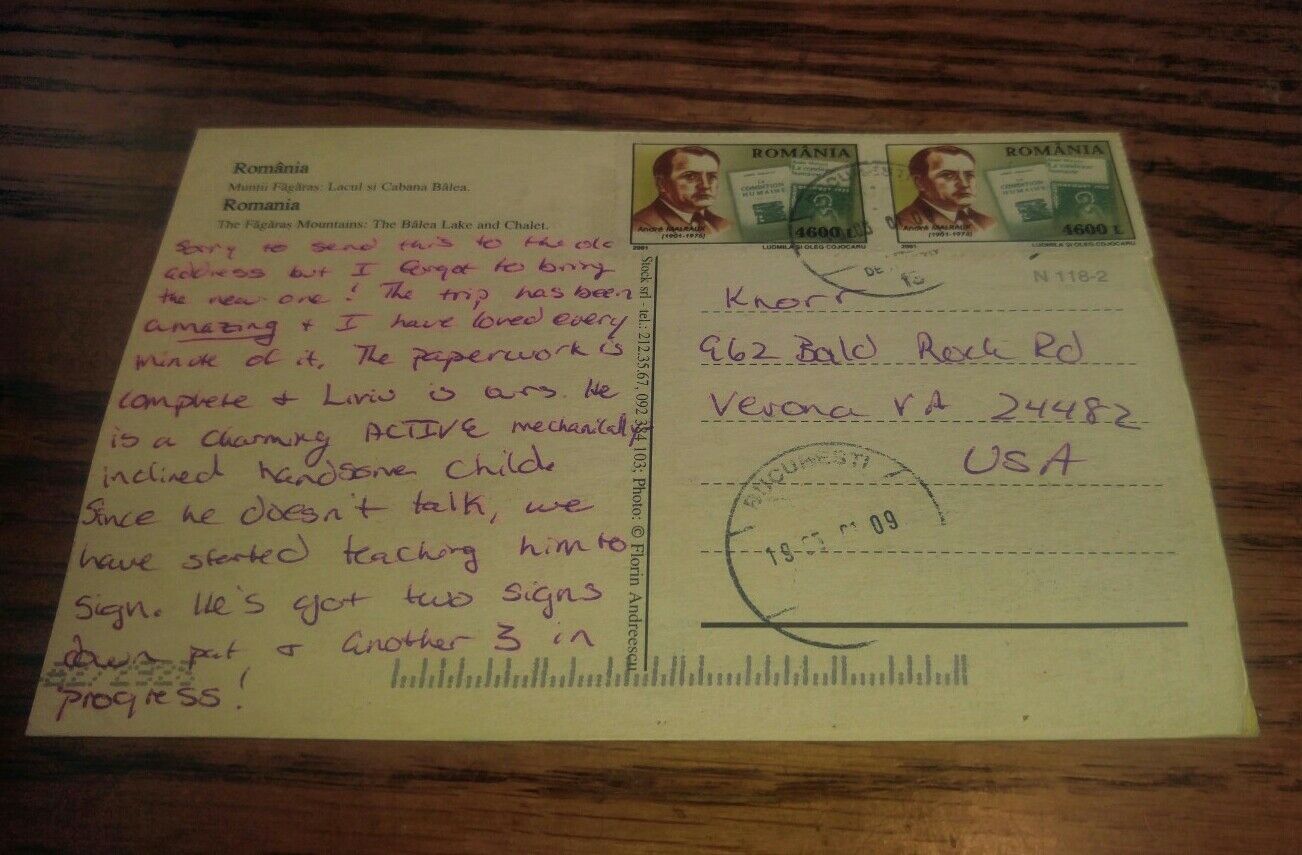 România
Munții Făgăraș: Lacul si Cabana Bâlea.
Romania
The Făgăraș Mountains: The Bâlea Lake and Chalet.
Sorry to send this to the old
address but I forgot to bring
the new one! The trip has been
amazing + I have loved every
minute of it. The paperwork is
complete + Liviu is ours. He
is a charming ACTIVE mechanically
inclined handsome child.
Since he doesn't talk, we
have started teaching him to
sign. He's got two signs
down pat + another 3 in
progress!
Stock srl - tel.: 212.35.67, 092 334 103; Photo: © Florin Andreescu
ROMÂNIA
LA CONDITION HUMAINE
André MALRAUX
(1901-1976)
4600 L
2001
LUDMILA ȘI OLEG COJOCARU
ROMÂNIA
LA CONDITION HUMAINE
André MALRAUX
(1901-1976)
4600 L
2001
LUDMILA ȘI OLEG COJOCARU
N 118-2
Knorr
962 Bald Rock Rd
Verona VA 24482
USA
BUCUREȘTI
09